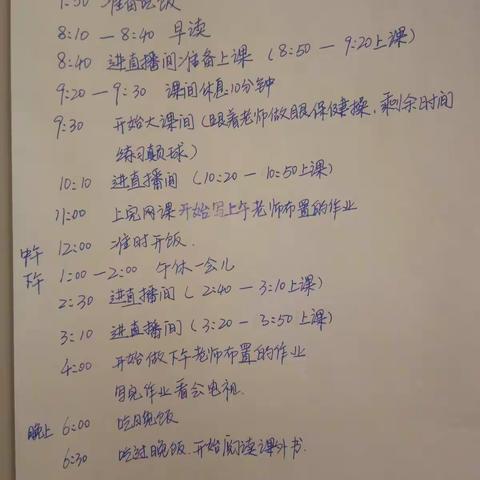 准备吃饭
8:10 — 8:40 早读
8:40 进直播间准备上课 (8:50 — 9:20上课)
9:20 — 9:30 课间休息10分钟
9:30 开始大课间 (跟着老师做眼保健操, 剩余时间
练习颠球)
10:10 进直播间 (10:20 — 10:50上课)
11:00 上完网课开始写上午老师布置的作业
中午 12:00 准时开饭.
下午 1:00 — 2:00 午休一会儿
2:30 进直播间 (2:40 — 3:10上课)
3:10 进直播间 (3:20 — 3:50上课)
4:00 开始做下午老师布置的作业
写完作业看会电视.
晚上 6:00 吃晚饭
6:30 吃过晚饭.开始阅读课外书.